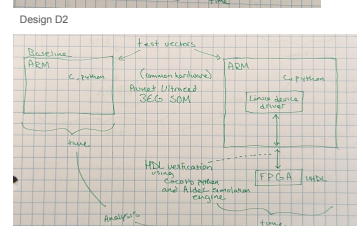 time
Design D2
test vectors
Baseline
ARM
C, python
(common hardware)
Avnet Ultra96
3EG SOM
ARM
C, python
Linux device
driver
time
HDL verification
using
Cocotb python
and Aldec simulation
engine
FPGA
VHDL
Analysis
time